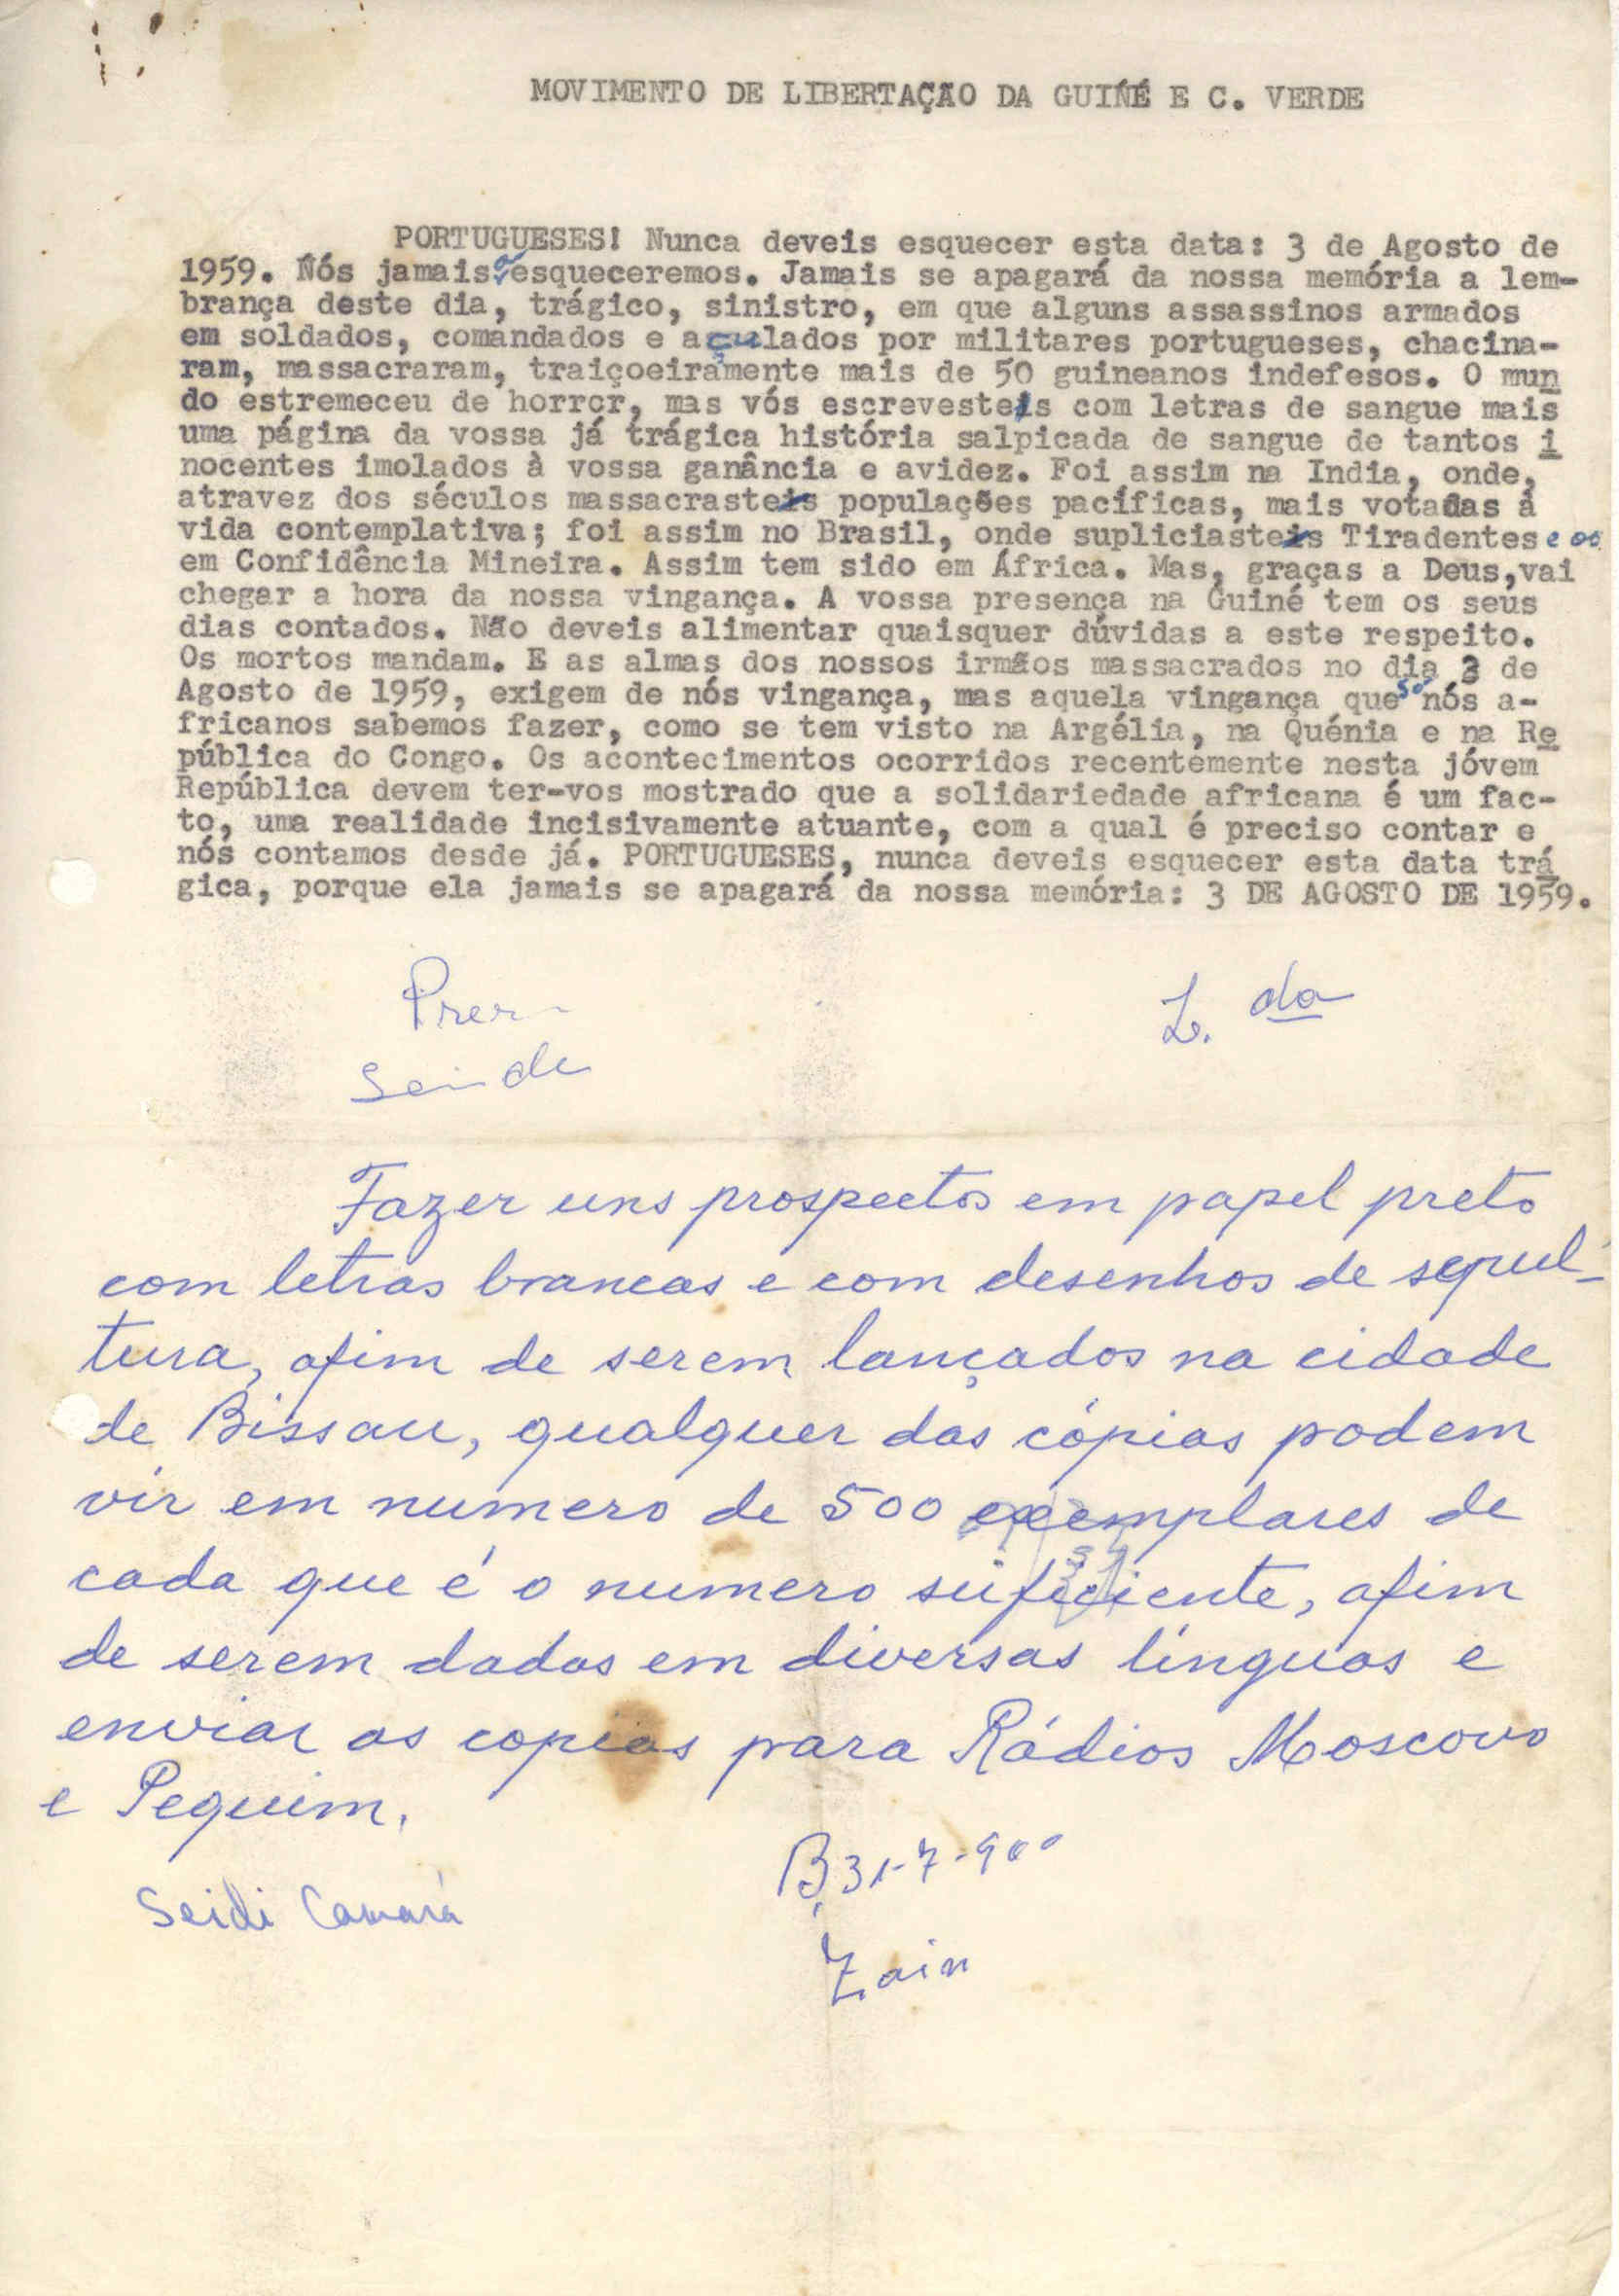 MOVIMENTO DE LIBERTAÇÃO DA GUINÉ E C. VERDE
PORTUGUESES! Nunca deveis esquecer esta data: 3 de Agosto de
1959. Nós jamais o esqueceremos. Jamais se apagará da nossa memória a lem-
brança deste dia, trágico, sinistro, em que alguns assassinos armados
em soldados, comandados e açulados por militares portugueses, chacina-
ram, massacraram, traiçoeiramente mais de 50 guineanos indefesos. O mun
do estremeceu de horror, mas vós escrevestes com letras de sangue mais
uma página da vossa já trágica história salpicada de sangue de tantos i
nocentes imolados à vossa ganância e avidez. Foi assim na India, onde,
atravez dos séculos massacrastes populações pacíficas, mais votadas à
vida contemplativa; foi assim no Brasil, onde supliciastes Tiradentes e os
em Confidência Mineira. Assim tem sido em África. Mas, graças a Deus,vai
chegar a hora da nossa vingança. A vossa presença na Guiné tem os seus
dias contados. Não deveis alimentar quaisquer dúvidas a este respeito.
Os mortos mandam. E as almas dos nossos irmãos massacrados no dia 3 de
Agosto de 1959, exigem de nós vingança, mas aquela vingança que só nós a-
fricanos sabemos fazer, como se tem visto na Argélia, na Quénia e na Re
pública do Congo. Os acontecimentos ocorridos recentemente nesta jóvem
República devem ter-vos mostrado que a solidariedade africana é um fac-
to, uma realidade incisivamente atuante, com a qual é preciso contar e
nós contamos desde já. PORTUGUESES, nunca deveis esquecer esta data trá
gica, porque ela jamais se apagará da nossa memória: 3 DE AGOSTO DE 1959.
L. da
Fazer uns prospectos em papel preto
com letras brancas e com desenhos de sepul-
tura, afim de serem lançados na cidade
de Bissau, qualquer das cópias podem
vir em numero de 500 exemplares de
cada que é o numero suficiente, afim
de serem dados em diversas línguas e
enviar as copias para Rádios Moscovo
e Pequim.
B, 31-7-960
Seidi Camará
Zain